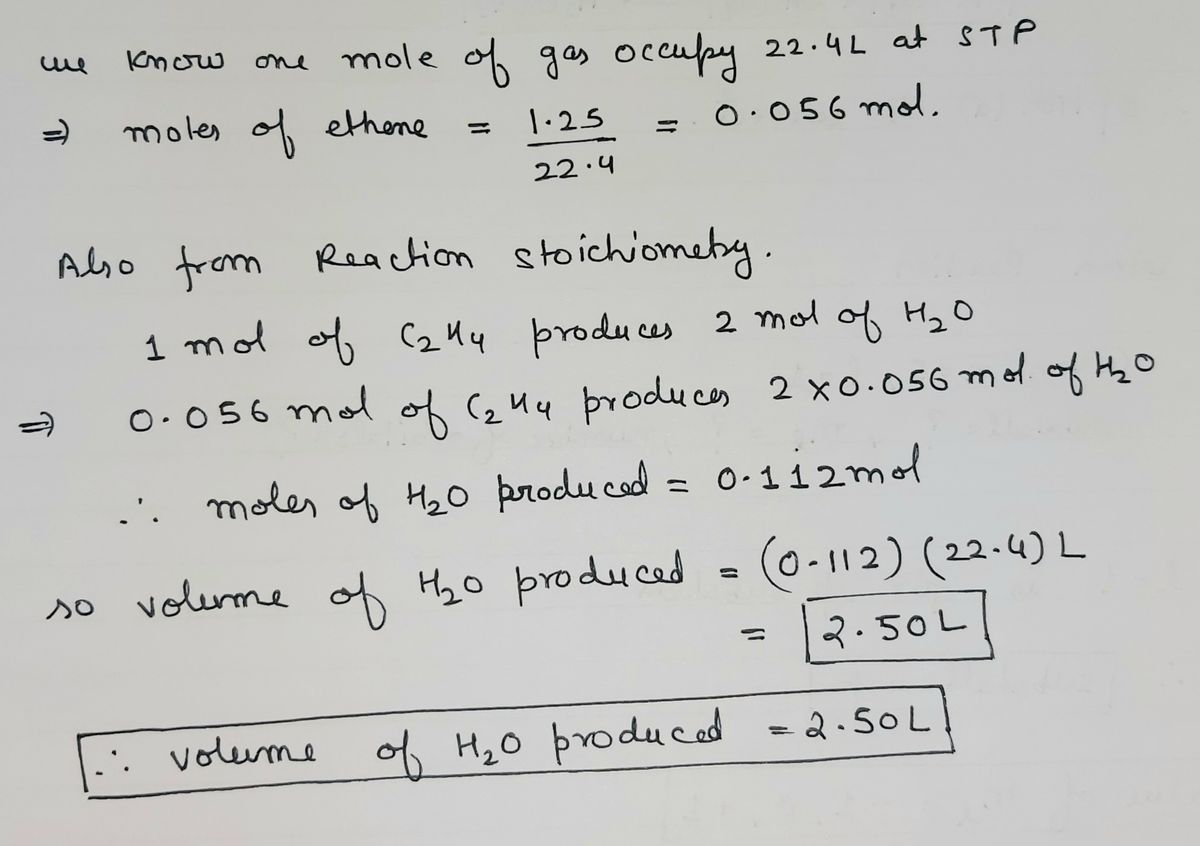 we know one mole of gas occupy 22.4L at STP
⇒ moles of ethene = 1.25/22.4 = 0.056 mol.
Also from Reaction stoichiometry.
1 mol of C2H4 produces 2 mol of H2O
⇒ 0.056 mol of C2H4 produces 2 x 0.056 mol of H2O
∴ moles of H2O produced = 0.112 mol
so volume of H2O produced = (0.112) (22.4) L
= 2.50 L
∴ volume of H2O produced = 2.50 L